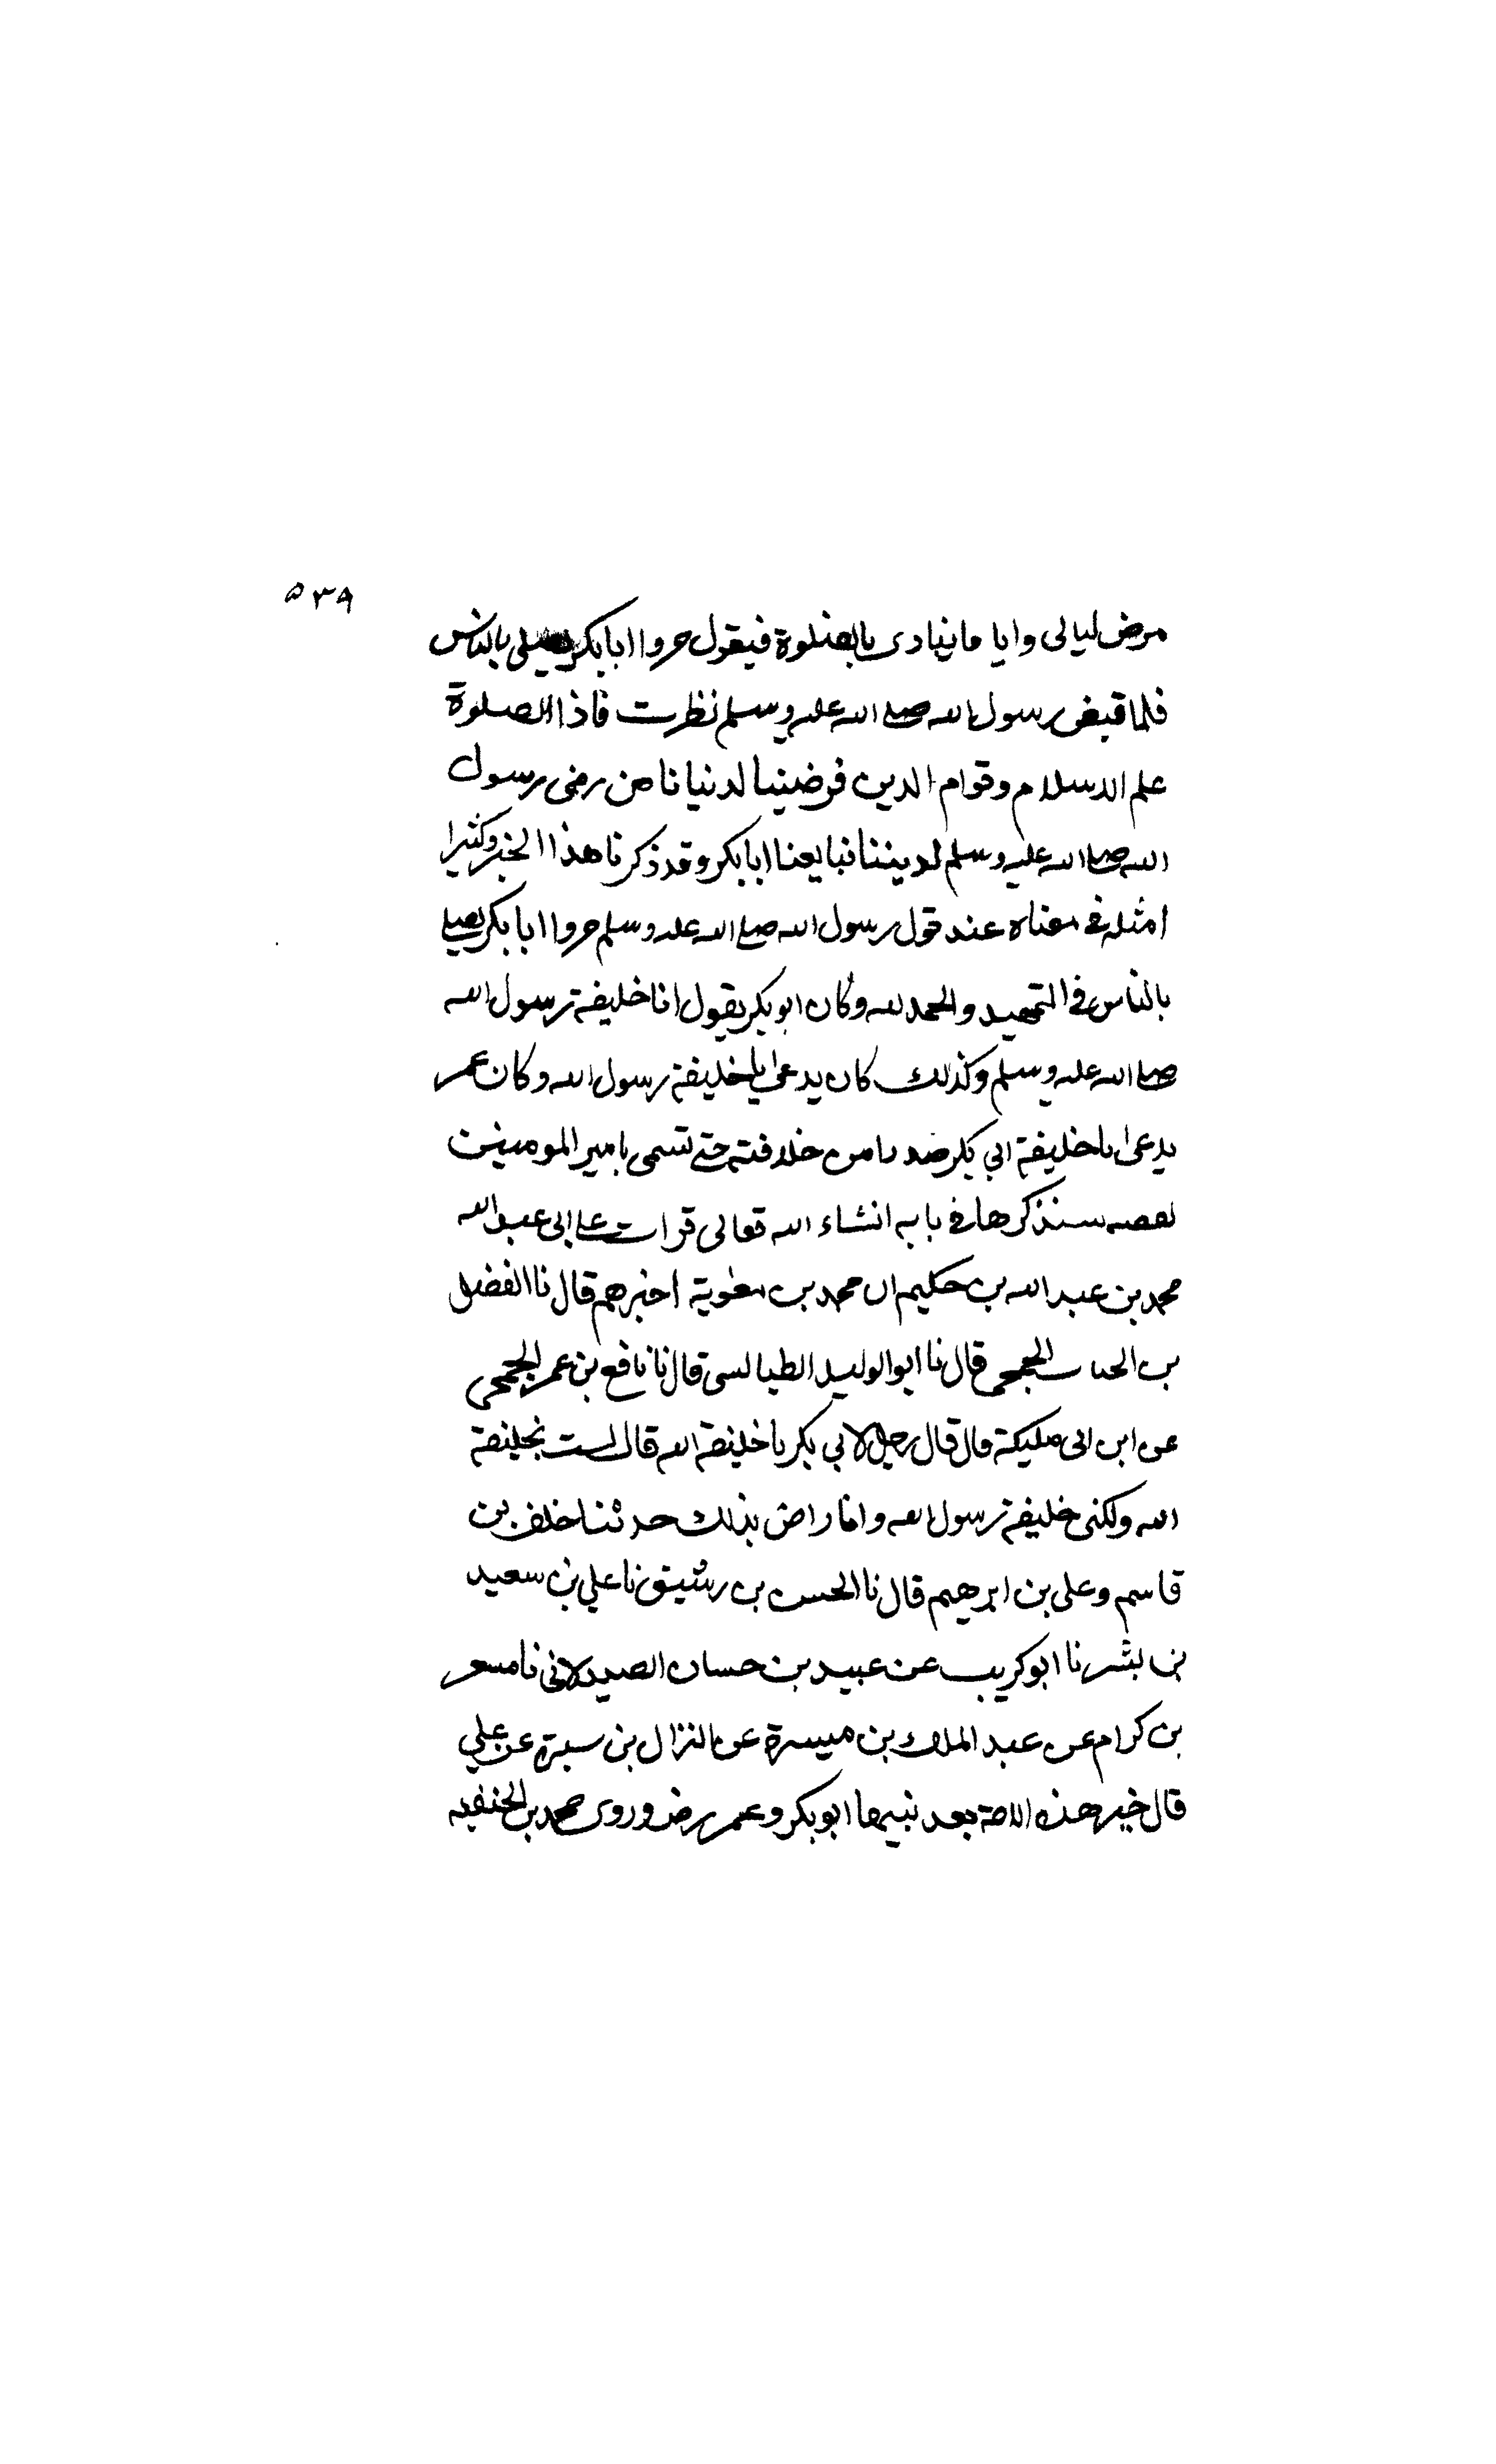 ٥٣٩
مرض ليالى واياما ينادى بالصلوة فيقول مروا ابا بكر يصلى بالناس
فلما قبض رسول الله صلى الله عليه وسلم نظرت فاذا الصلوة
علم الاسلام وقوام الدين فرضينا لدنيانا من رضى رسول
الله صلى الله عليه وسلم لديننا فبايعنا ابا بكر وقد ذكرنا هذا الخبر وكثيرا
امثله فى معناه عند قول رسول الله صلى الله عليه وسلم مروا ابا بكر يصلى
بالناس فى التمهيد والحمد لله وكان ابو بكر يقول انا خليفة رسول الله
صلى الله عليه وسلم وكذلك كان يدعى يا خليفة رسول الله وكان عمر
يدعى يا خليفة ابي بكر صدرا من خلافته حتى تسمى بامير المومنين
لقصه سنذكرها فى بابه انشاء الله تعالى قرات على ابى عبد الله
محمد بن عبد الله بن حكيم ان محمد بن معوية اخبرهم قال نا الفضل
بن الحباب الجمحى قال نا ابو الوليد الطيالسى قال نا نافع بن عمر الجمحى
عن ابن ابى مليكة قال قال رجل لابي بكر يا خليفة الله قال لست بخليفة
الله ولكنى خليفة رسول الله وانا راض بذلك حدثنا خلف بن
قاسم وعلى بن ابرهيم قال نا الحسن بن رشيق نا علي بن سعيد
بن بشر نا ابو كريب عن عبيد بن حسان الصيدلانى نا مسعر
بن كرام عن عبد الملك بن ميسرة عن النزال بن سبرة عن علي
قال خير هذه الامة بعد نبيها ابو بكر وعمر رض وروى محمد بن الحنفيه